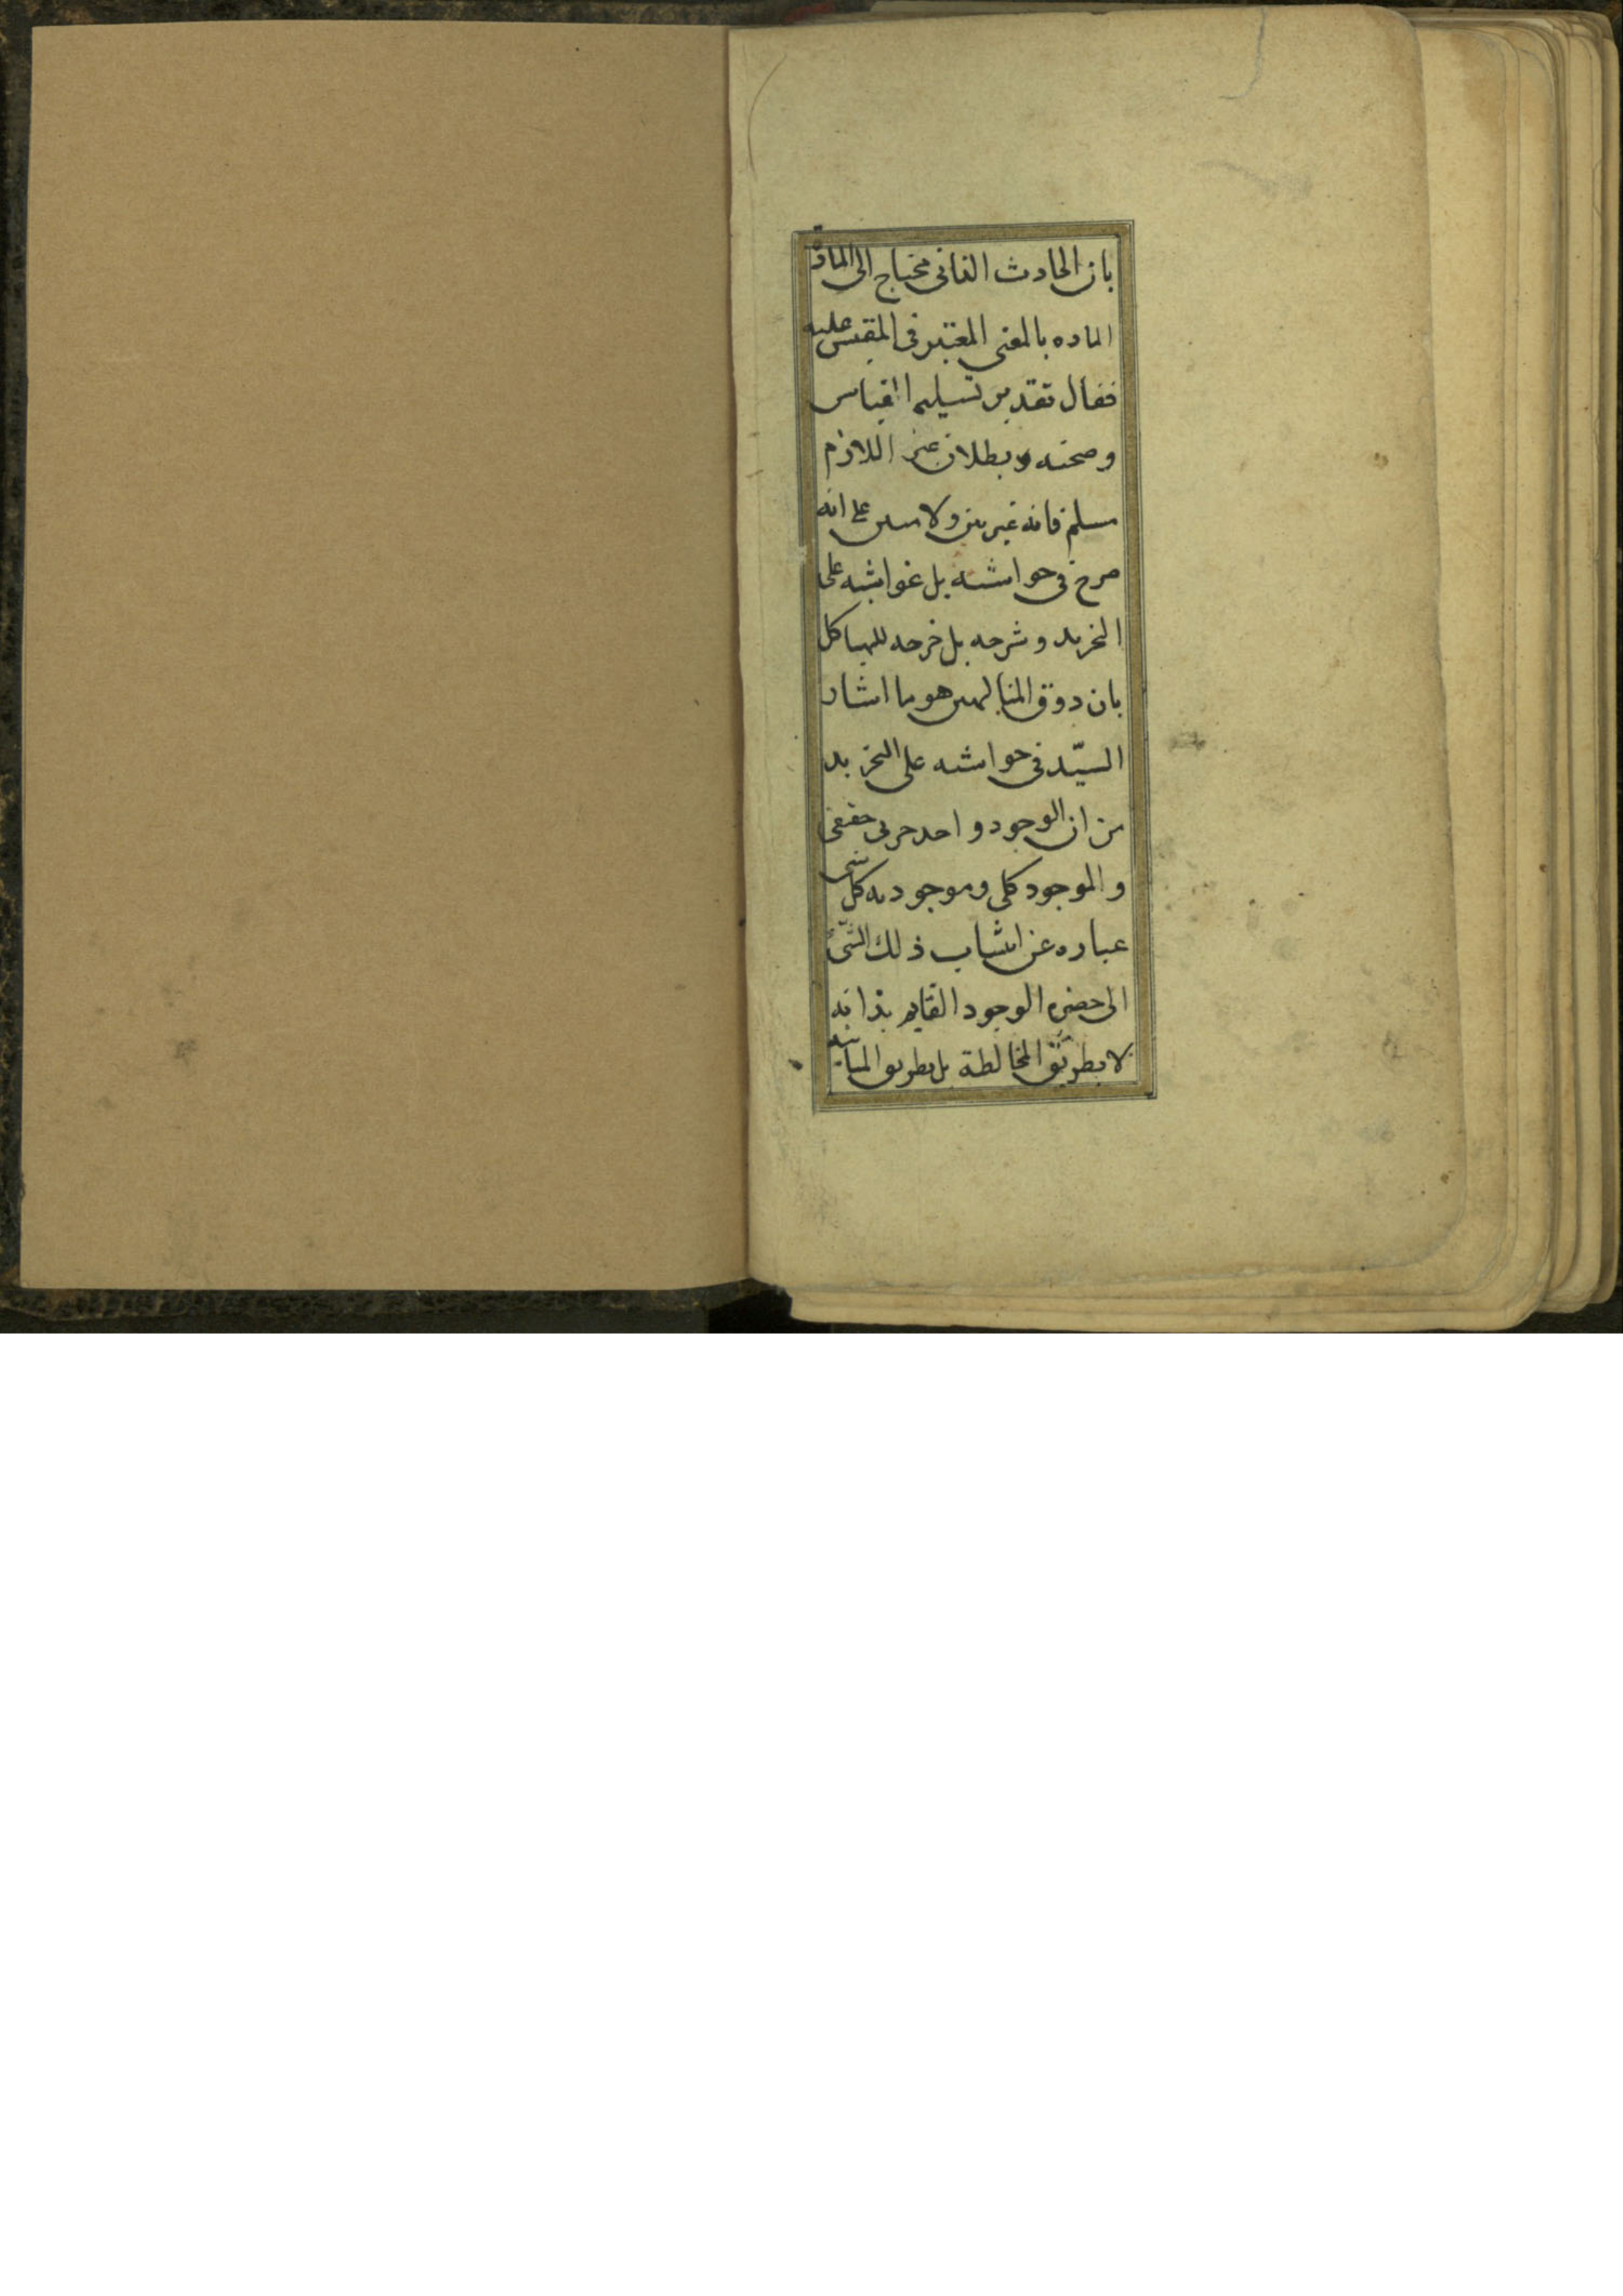 بان الحادث الفانی محتاج الی المادة
الماده بالمعنی المعتبر فی المقیس علیه
فقال تقدیر تسلیم القیاس
وصحته وبطلان اللازم
مسلم فانه غیر بین ولا مبین علی انه
صرح فی حواشیه بل غواشیه علی
التجرید وشرحه بل جرحه للهیاکل
بان ذوق المتالهین هو ما اشار
السیّد فی حواشیه علی التجرید
من ان الوجود واحد جزیی حقیقی
والموجود کلی وموجودیه کل شی
عباره عن انتساب ذلك الشّیء
الی حضره الوجود القایم بذاته
لا بطریق المخالطة بل بطریق المباینه